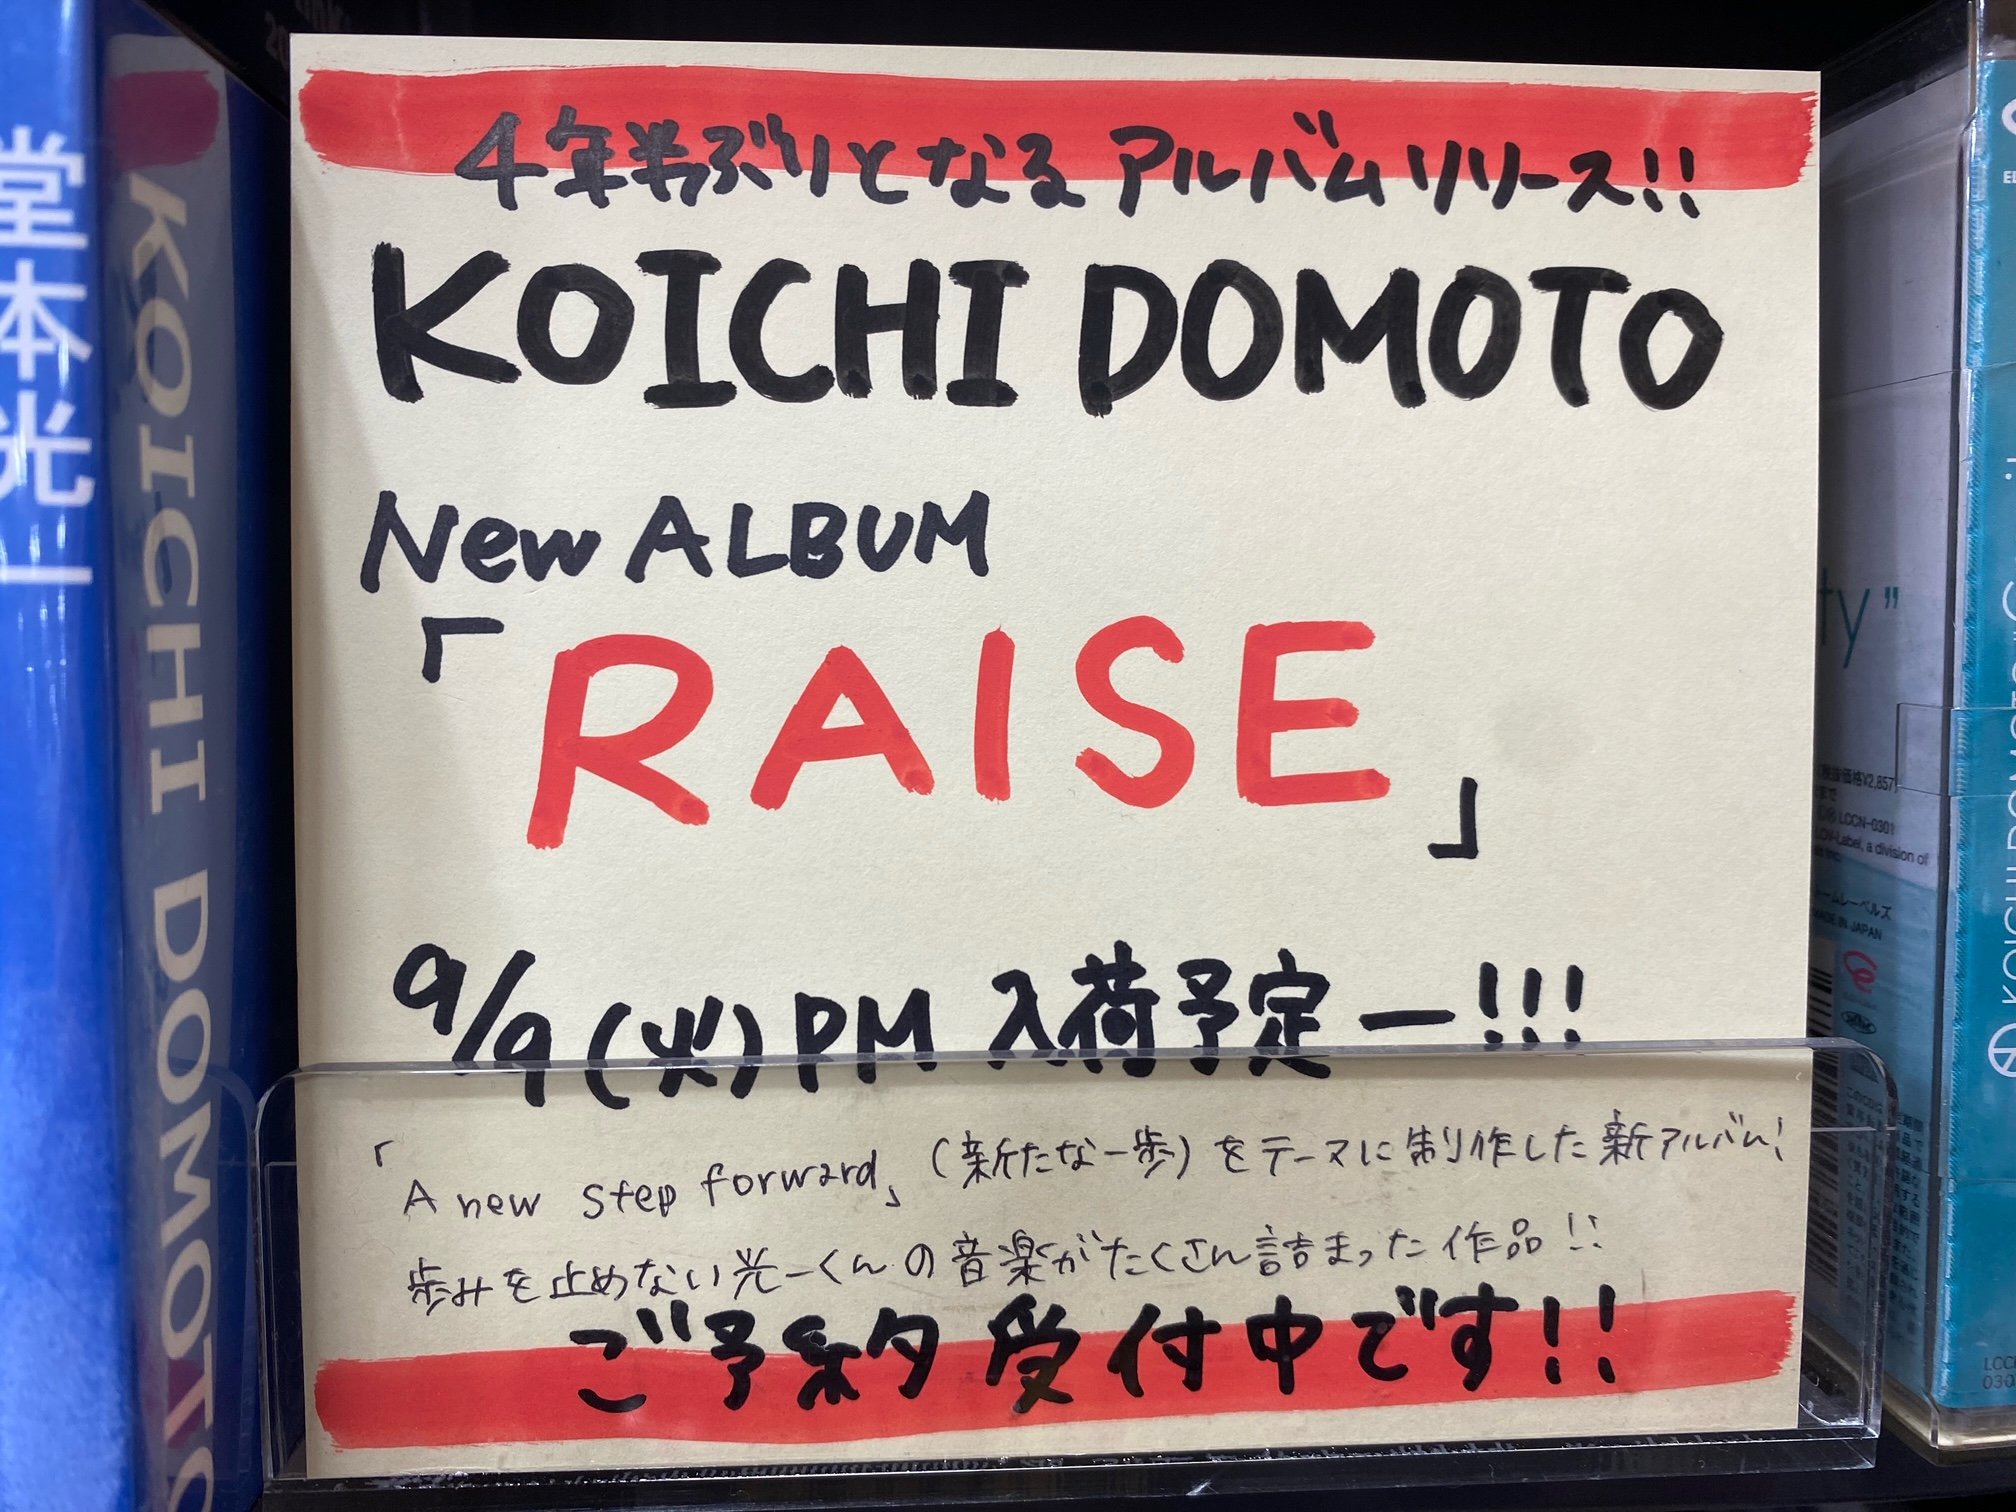 4年半ぶりとなるアルバムリリース!!
KOICHI DOMOTO
New ALBUM
「RAISE」
9/9(火)PM 入荷予定ー!!!
「A new step forward」(新たな一歩)をテーマに制作した新アルバム!
歩みを止めない光一くんの音楽がたくさん詰まった作品!!
ご予約受付中です!!
堂本光一
KOICHI DOMOTO
ty"
税抜価格¥2,857
LCCN-0301
a division of
MADE IN JAPAN
KOICHI DOMOTO